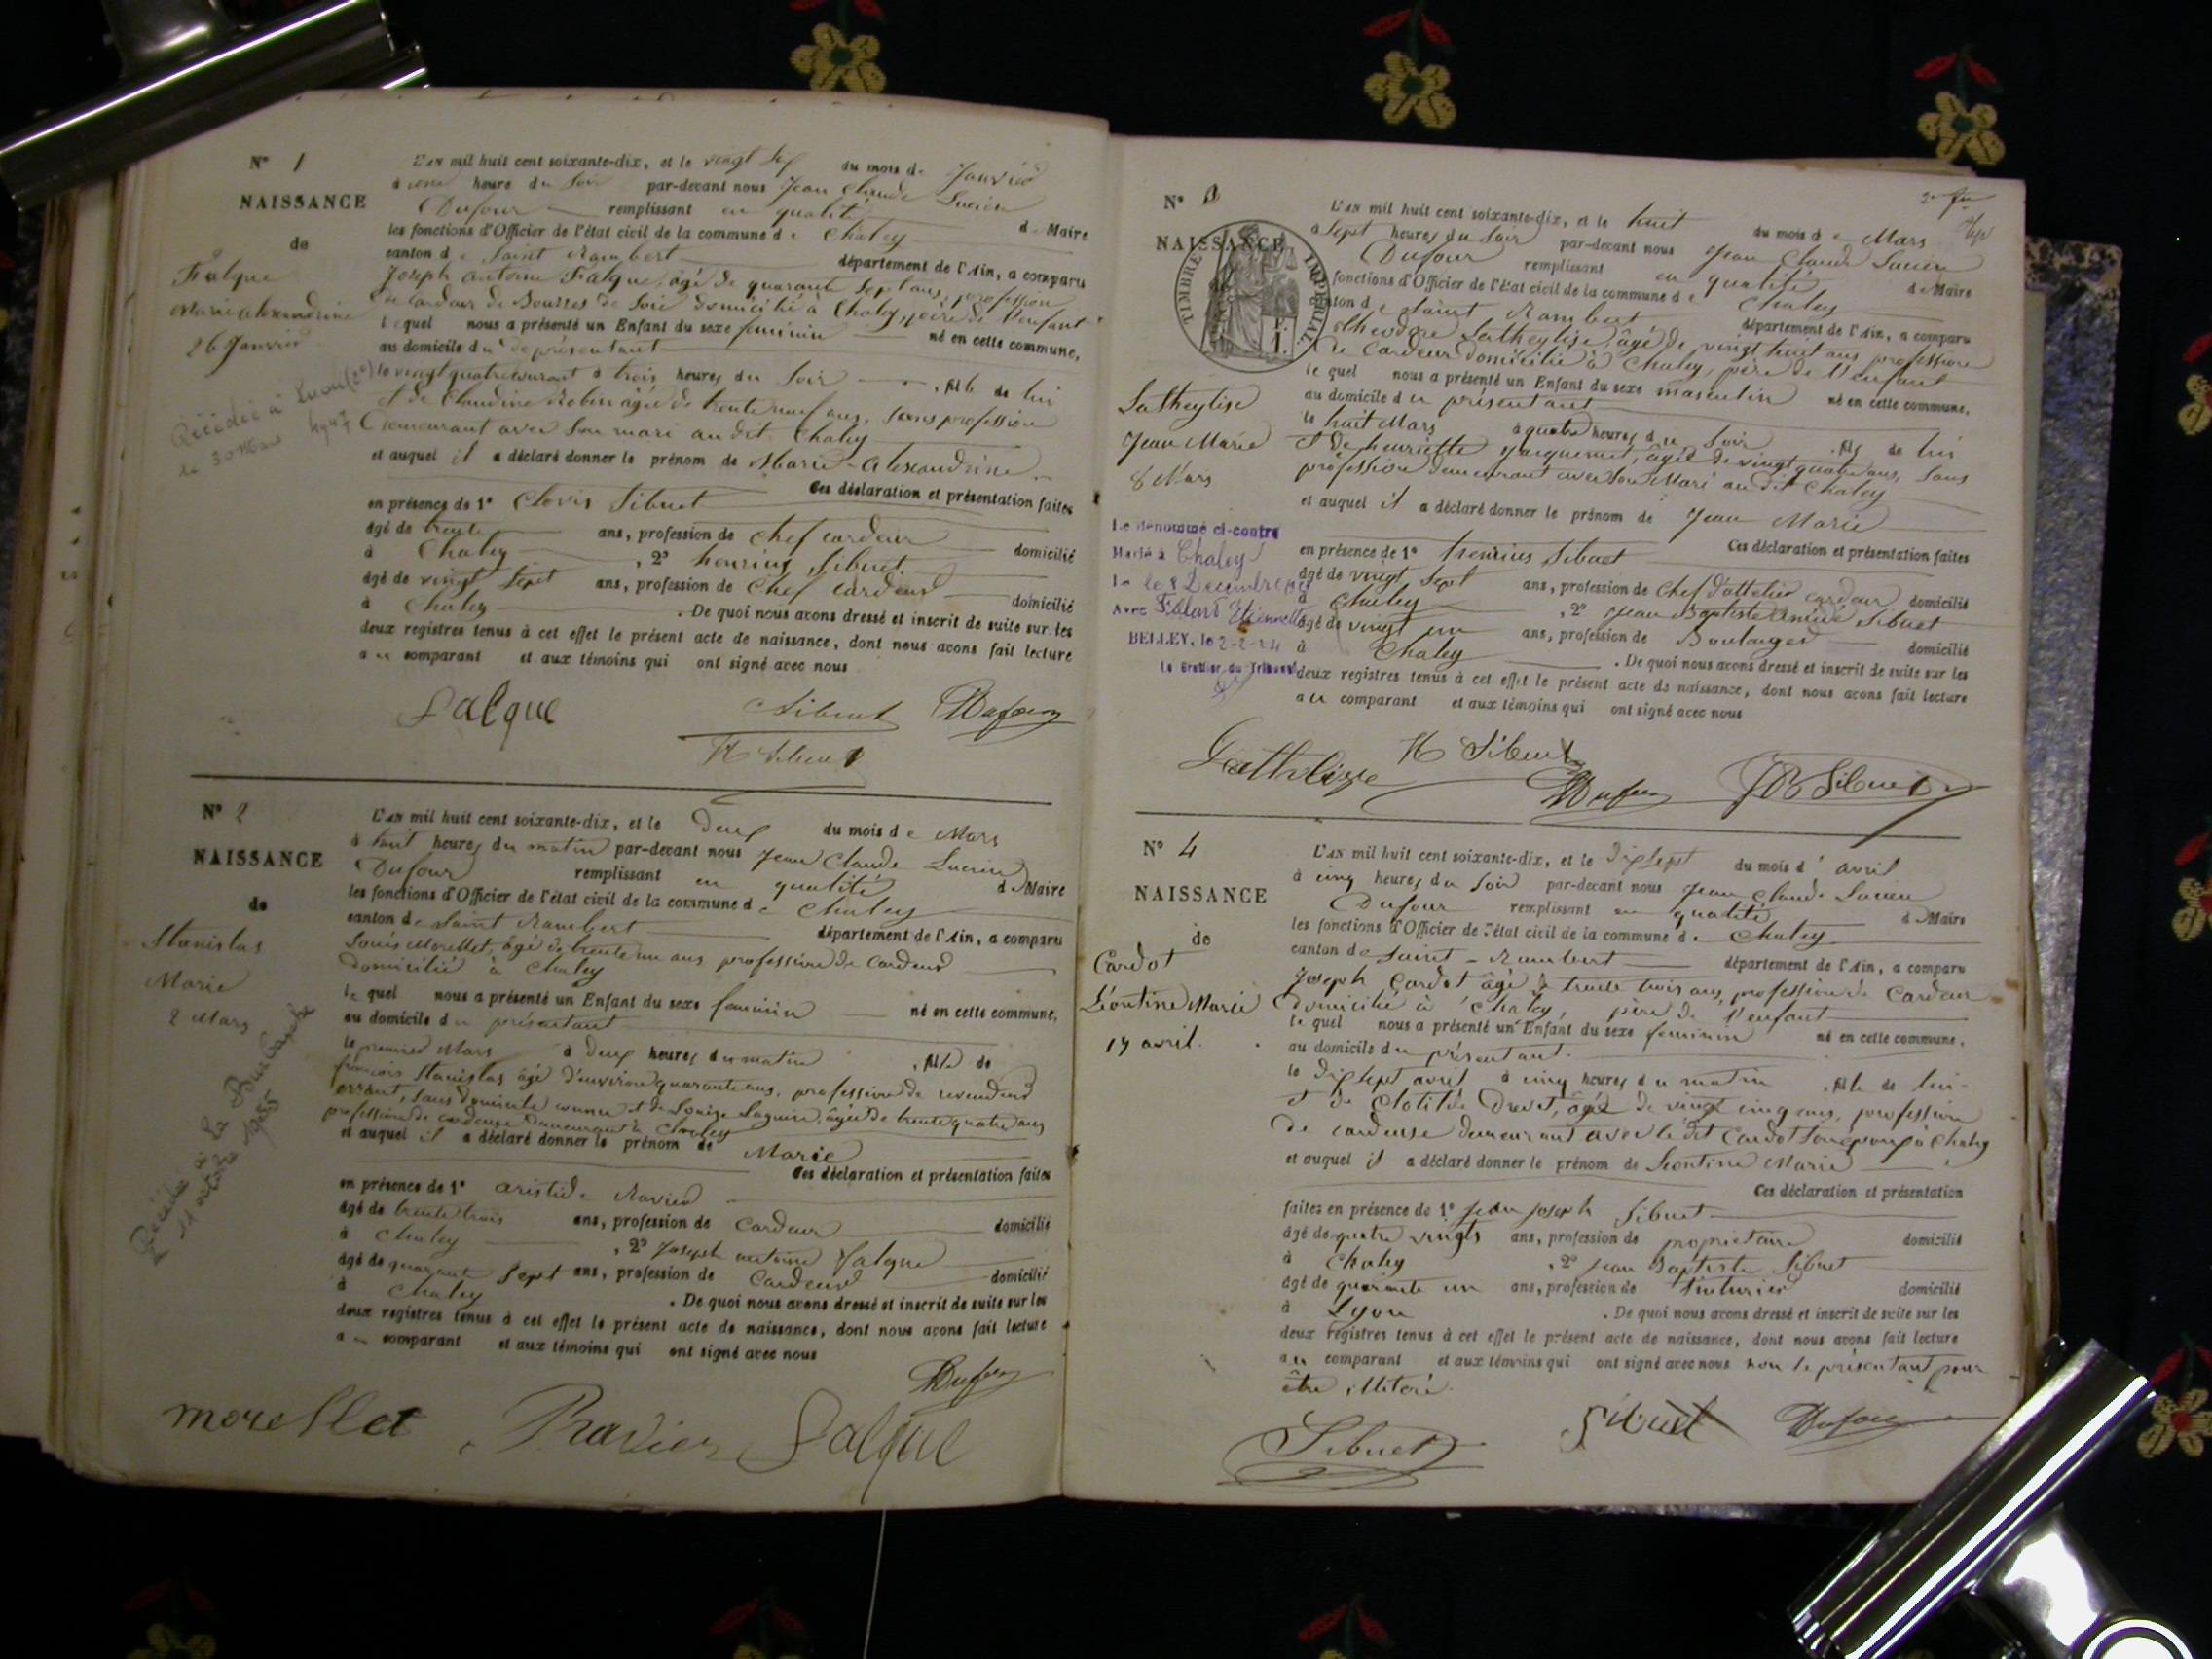 N° 1
NAISSANCE
de
Falque
Marie Alexandrine
26 Janvier
Décédée à Lyon (2e)
le 30 Mars 1947
L'AN mil huit cent soixante-dix, et le vingt six du mois de Janvier
à une heure du Soir par-devant nous Jean Claude Lucien
Dufour remplissant en qualité de Maire
les fonctions d'Officier de l'état civil de la commune de Chaley
canton de Saint Rambert département de l'Ain, a comparu
Joseph antoine Falque, âgé de quarante Sept ans, profession
de Cardeur de Bourres de Soie domicilié à Chaley, père de l'enfant
lequel nous a présenté un Enfant du sexe feminin né en cette commune,
au domicile du présentant
le vingt quatre courant à trois heures du Soir , fille de lui
et de Claudine Robin agée de trente neuf ans, sans profession
demeurant avec son mari au dit Chaley
et auquel il a déclaré donner le prénom de Marie-Alexandrine
Ces déclaration et présentation faites
en présence de 1° Clovis Sibuet
âgé de trente ans, profession de Chef cardeur domicilié
à Chaley , 2° henrius Sibuet
âgé de vingt Sept ans, profession de Chef cardeur domicilié
à Chaley . De quoi nous avons dressé et inscrit de suite sur les
deux registres tenus à cet effet le présent acte de naissance, dont nous avons fait lecture
au comparant et aux témoins qui ont signé avec nous
Falque Sibuet Dufour
H Sibuet
N° 2
NAISSANCE
de
Stanislas
Marie
2 Mars
L'AN mil huit cent soixante-dix, et le deux du mois de Mars
à huit heures du matin par-devant nous Jean Claude Lucien
Dufour remplissant en qualité de Maire
les fonctions d'Officier de l'état civil de la commune de Chaley
canton de Saint Rambert département de l'Ain, a comparu
Louis Morellet, âgé de trente un ans profession de Cardeur
domicilié à Chaley
lequel nous a présenté un Enfant du sexe feminin né en cette commune,
au domicile du présentant
le premier Mars à deux heures du matin , fille de
françois Stanislas âgé d'environ quarante ans, profession de revendeur
errant, sans domicile connu et de Louise Laguire, âgée de trente quatre ans
profession de cardeuse demeurant à Chaley
et auquel il a déclaré donner le prénom de Marie
Ces déclaration et présentation faites
en présence de 1° aristide Ravier
âgé de trente trois ans, profession de Cardeur domicilié
à Chaley , 2° Joseph antoine falque
âgé de quarante Sept ans, profession de Cardeur domicilié
à Chaley . De quoi nous avons dressé et inscrit de suite sur les
deux registres tenus à cet effet le présent acte de naissance, dont nous avons fait lecture
au comparant et aux témoins qui ont signé avec nous
Dufour
morellet Ravier Falque
N° 3
NAISSANCE
TIMBRE IMPÉRIAL
Latheylise
Jean Marie
8 Mars
Le dénommé ci-contre
Marié à Chaley
Le 8 Décembre
Avec Etiennette
BELLEY, le 2-2-24
Le Greffier du Tribunal
L'AN mil huit cent soixante-dix, et le huit du mois de Mars
à Sept heures du Soir par-devant nous Jean Claude Lucien
Dufour remplissant en qualité de Maire
fonctions d'Officier de l'état civil de la commune de Chaley
canton de Saint Rambert département de l'Ain, a comparu
théodore Latheylise, âgé de vingt huit ans profession
de Cardeur domicilié à Chaley, père de l'enfant
lequel nous a présenté un Enfant du sexe masculin né en cette commune,
au domicile du présentant
le huit Mars à quatre heures du Soir , fils de lui
et de henriette Jacquemet, âgée de vingt quatre ans, Sans
profession demeurant avec son Mari au dit Chaley
et auquel il a déclaré donner le prénom de Jean Marie
Ces déclaration et présentation faites
en présence de 1° henrius Sibuet
âgé de vingt sept ans, profession de Chef d'attelier cardeur domicilié
à Chaley , 2° Jean Baptiste Sibuet
âgé de vingt un ans, profession de Boulanger domicilié
à Chaley . De quoi nous avons dressé et inscrit de suite sur les
deux registres tenus à cet effet le présent acte de naissance, dont nous avons fait lecture
au comparant et aux témoins qui ont signé avec nous
H Sibuet
Dufour JB Sibuet
N° 4
NAISSANCE
de
Cardot
Léontine Marie
17 avril
L'AN mil huit cent soixante-dix, et le dix sept du mois d'avril
à cinq heures du Soir par-devant nous Jean Claude Lucien
Dufour remplissant en qualité de Maire
les fonctions d'Officier de l'état civil de la commune de Chaley
canton de Saint-Rambert département de l'Ain, a comparu
Joseph Cardot âgé de trente trois ans, profession de Cardeur
domicilié à Chaley, père de l'enfant
lequel nous a présenté un Enfant du sexe feminin né en cette commune,
au domicile du présentant.
le dix sept avril à cinq heures du matin , fille de lui
et de Clotilde Drevet, âgée de vingt cinq ans, profession
de cardeuse demeurant avec le dit Cardot son époux à Chaley
et auquel il a déclaré donner le prénom de Léontine Marie
Ces déclaration et présentation
faites en présence de 1° Jean Joseph Sibuet
âgé de quatre vingts ans, profession de proprietaire domicilié
à Chaley , 2° Jean Baptiste Sibuet
âgé de quarante un ans, profession de teinturier domicilié
à Lyon . De quoi nous avons dressé et inscrit de suite sur les
deux registres tenus à cet effet le présent acte de naissance, dont nous avons fait lecture
au comparant et aux témoins qui ont signé avec nous non le présentant pour
être illiteré.
Sibuet Sibuet Dufour